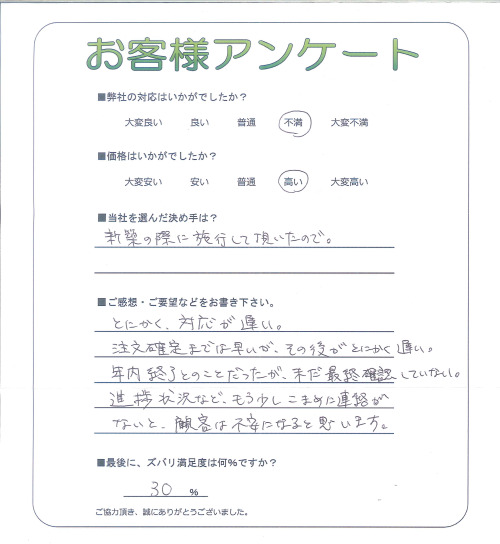 お客様アンケート
■弊社の対応はいかがでしたか？
大変良い 良い 普通 不満 大変不満
■価格はいかがでしたか？
大変安い 安い 普通 高い 大変高い
■当社を選んだ決め手は？
新築の際に施行して頂いたので。
■ご感想・ご要望などをお書き下さい。
とにかく、対応が遅い。
注文確定までは早いが、その後がとにかく遅い。
年内終了とのことだったが、未だ最終確認していない。
進捗状況など、もう少しこまめに連絡が
ないと、顧客は不安になると思います。
■最後に、ズバリ満足度は何%ですか？
30 %
ご協力頂き、誠にありがとうございました。